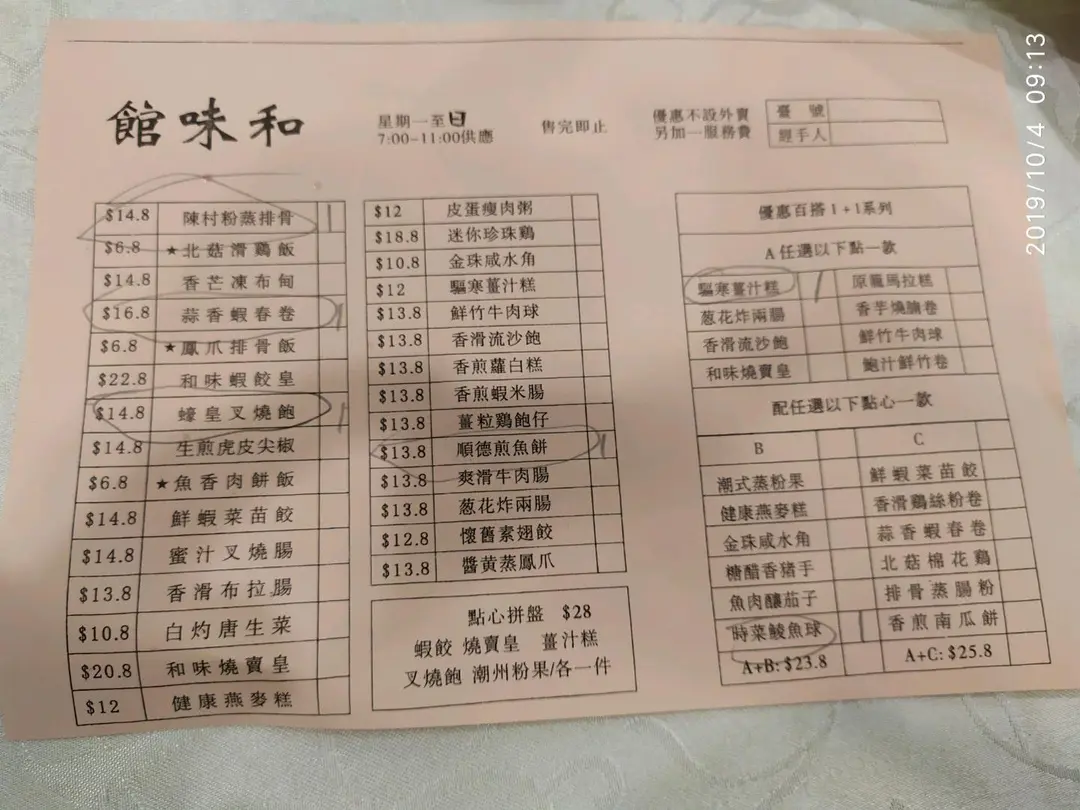 館味和
星期一至日
7:00-11:00供應
售完即止
優惠不設外賣
另加一服務費
臺號
經手人
2019/10/4 09:13
$14.8 陳村粉蒸排骨 1
$6.8 ★北菇滑鷄飯
$14.8 香芒凍布甸
$16.8 蒜香蝦春卷 1
$6.8 ★鳳爪排骨飯
$22.8 和味蝦餃皇
$14.8 蠔皇叉燒飽 1
$14.8 生煎虎皮尖椒
$6.8 ★魚香肉餅飯
$14.8 鮮蝦菜苗餃
$14.8 蜜汁叉燒腸
$13.8 香滑布拉腸
$10.8 白灼唐生菜
$20.8 和味燒賣皇
$12 健康燕麥糕
$12 皮蛋瘦肉粥
$18.8 迷你珍珠鷄
$10.8 金珠咸水角
$12 驅寒薑汁糕
$13.8 鮮竹牛肉球
$13.8 香滑流沙飽
$13.8 香煎蘿白糕
$13.8 香煎蝦米腸
$13.8 薑粒鷄飽仔
$13.8 順德煎魚餅 1
$13.8 爽滑牛肉腸
$13.8 葱花炸兩腸
$12.8 懷舊素翅餃
$13.8 醬黄蒸鳳爪
點心拼盤 $28
蝦餃 燒賣皇 薑汁糕
叉燒飽 潮州粉果/各一件
優惠百搭1+1系列
A任選以下點一款
驅寒薑汁糕 1 原籠馬拉糕
葱花炸兩腸 香芋燒腩卷
香滑流沙飽 鮮竹牛肉球
和味燒賣皇 鮑汁鮮竹卷
配任選以下點心一款
B C
潮式蒸粉果 鮮蝦菜苗餃
健康燕麥糕 香滑鷄絲粉卷
金珠咸水角 蒜香蝦春卷
糖醋香豬手 北菇棉花鷄
魚肉釀茄子 排骨蒸腸粉
時菜鯪魚球 1 香煎南瓜餅
A+B: $23.8 A+C: $25.8